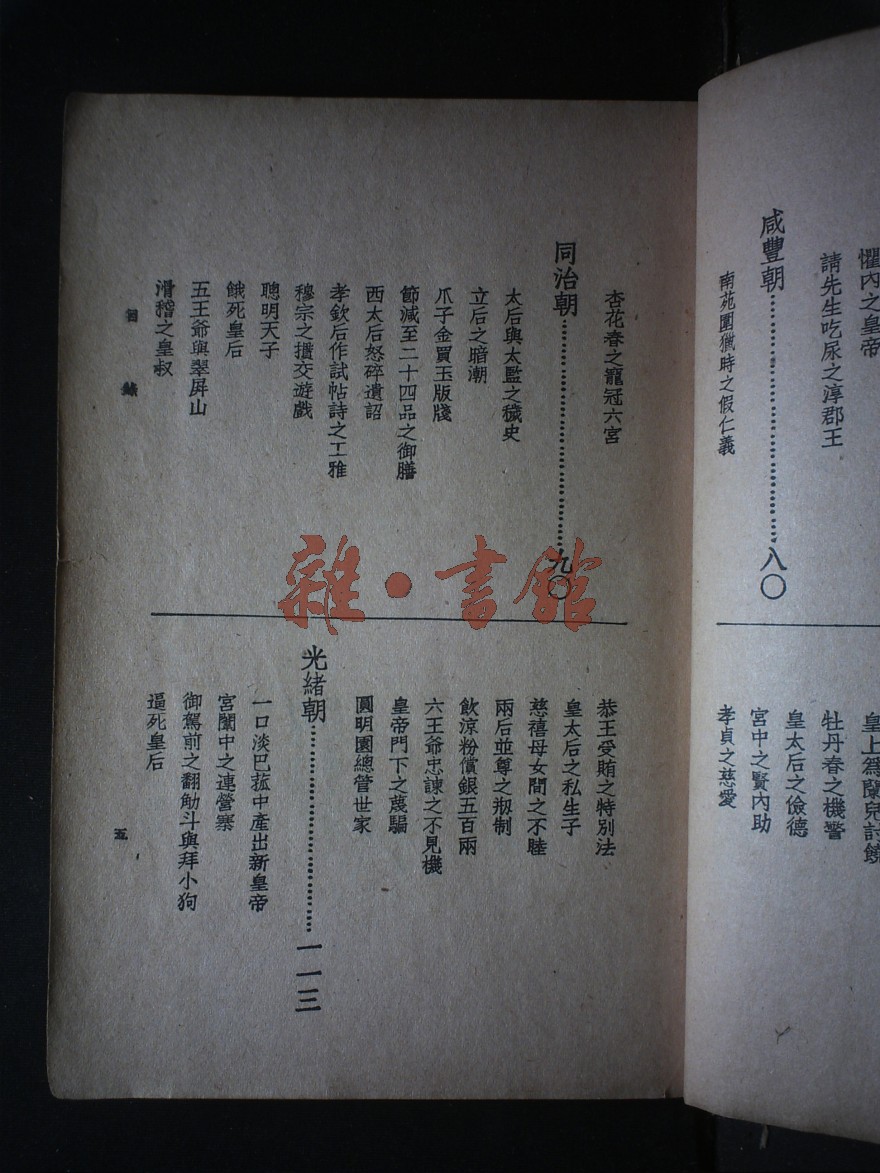 懼內之皇帝
請先生吃尿之淳郡王
咸豐朝……八〇
南苑圍獵時之假仁義
皇上爲蘭兒討饒
牡丹春之機警
皇太后之儉德
宮中之賢內助
孝貞之慈愛
杏花春之寵冠六宮
同治朝……九〇
太后與太監之穢史
立后之暗潮
爪子金買玉版牋
節減至二十四品之御膳
西太后怒碎遺詔
孝欽后作試帖詩之工雅
穆宗之摜交遊戲
聰明天子
餓死皇后
五王爺與翠屏山
滑稽之皇叔
恭王受賄之特別法
皇太后之私生子
慈禧母女間之不睦
兩后並尊之剏制
飲涼粉償銀五百兩
六王爺忠諫之不見機
皇帝門下之蔑騙
圓明園總管世家
光緒朝……一一三
一口淡巴菰中產出新皇帝
宮闈中之連營寨
御駕前之翻觔斗與拜小狗
逼死皇后
目錄
五
雜·書館